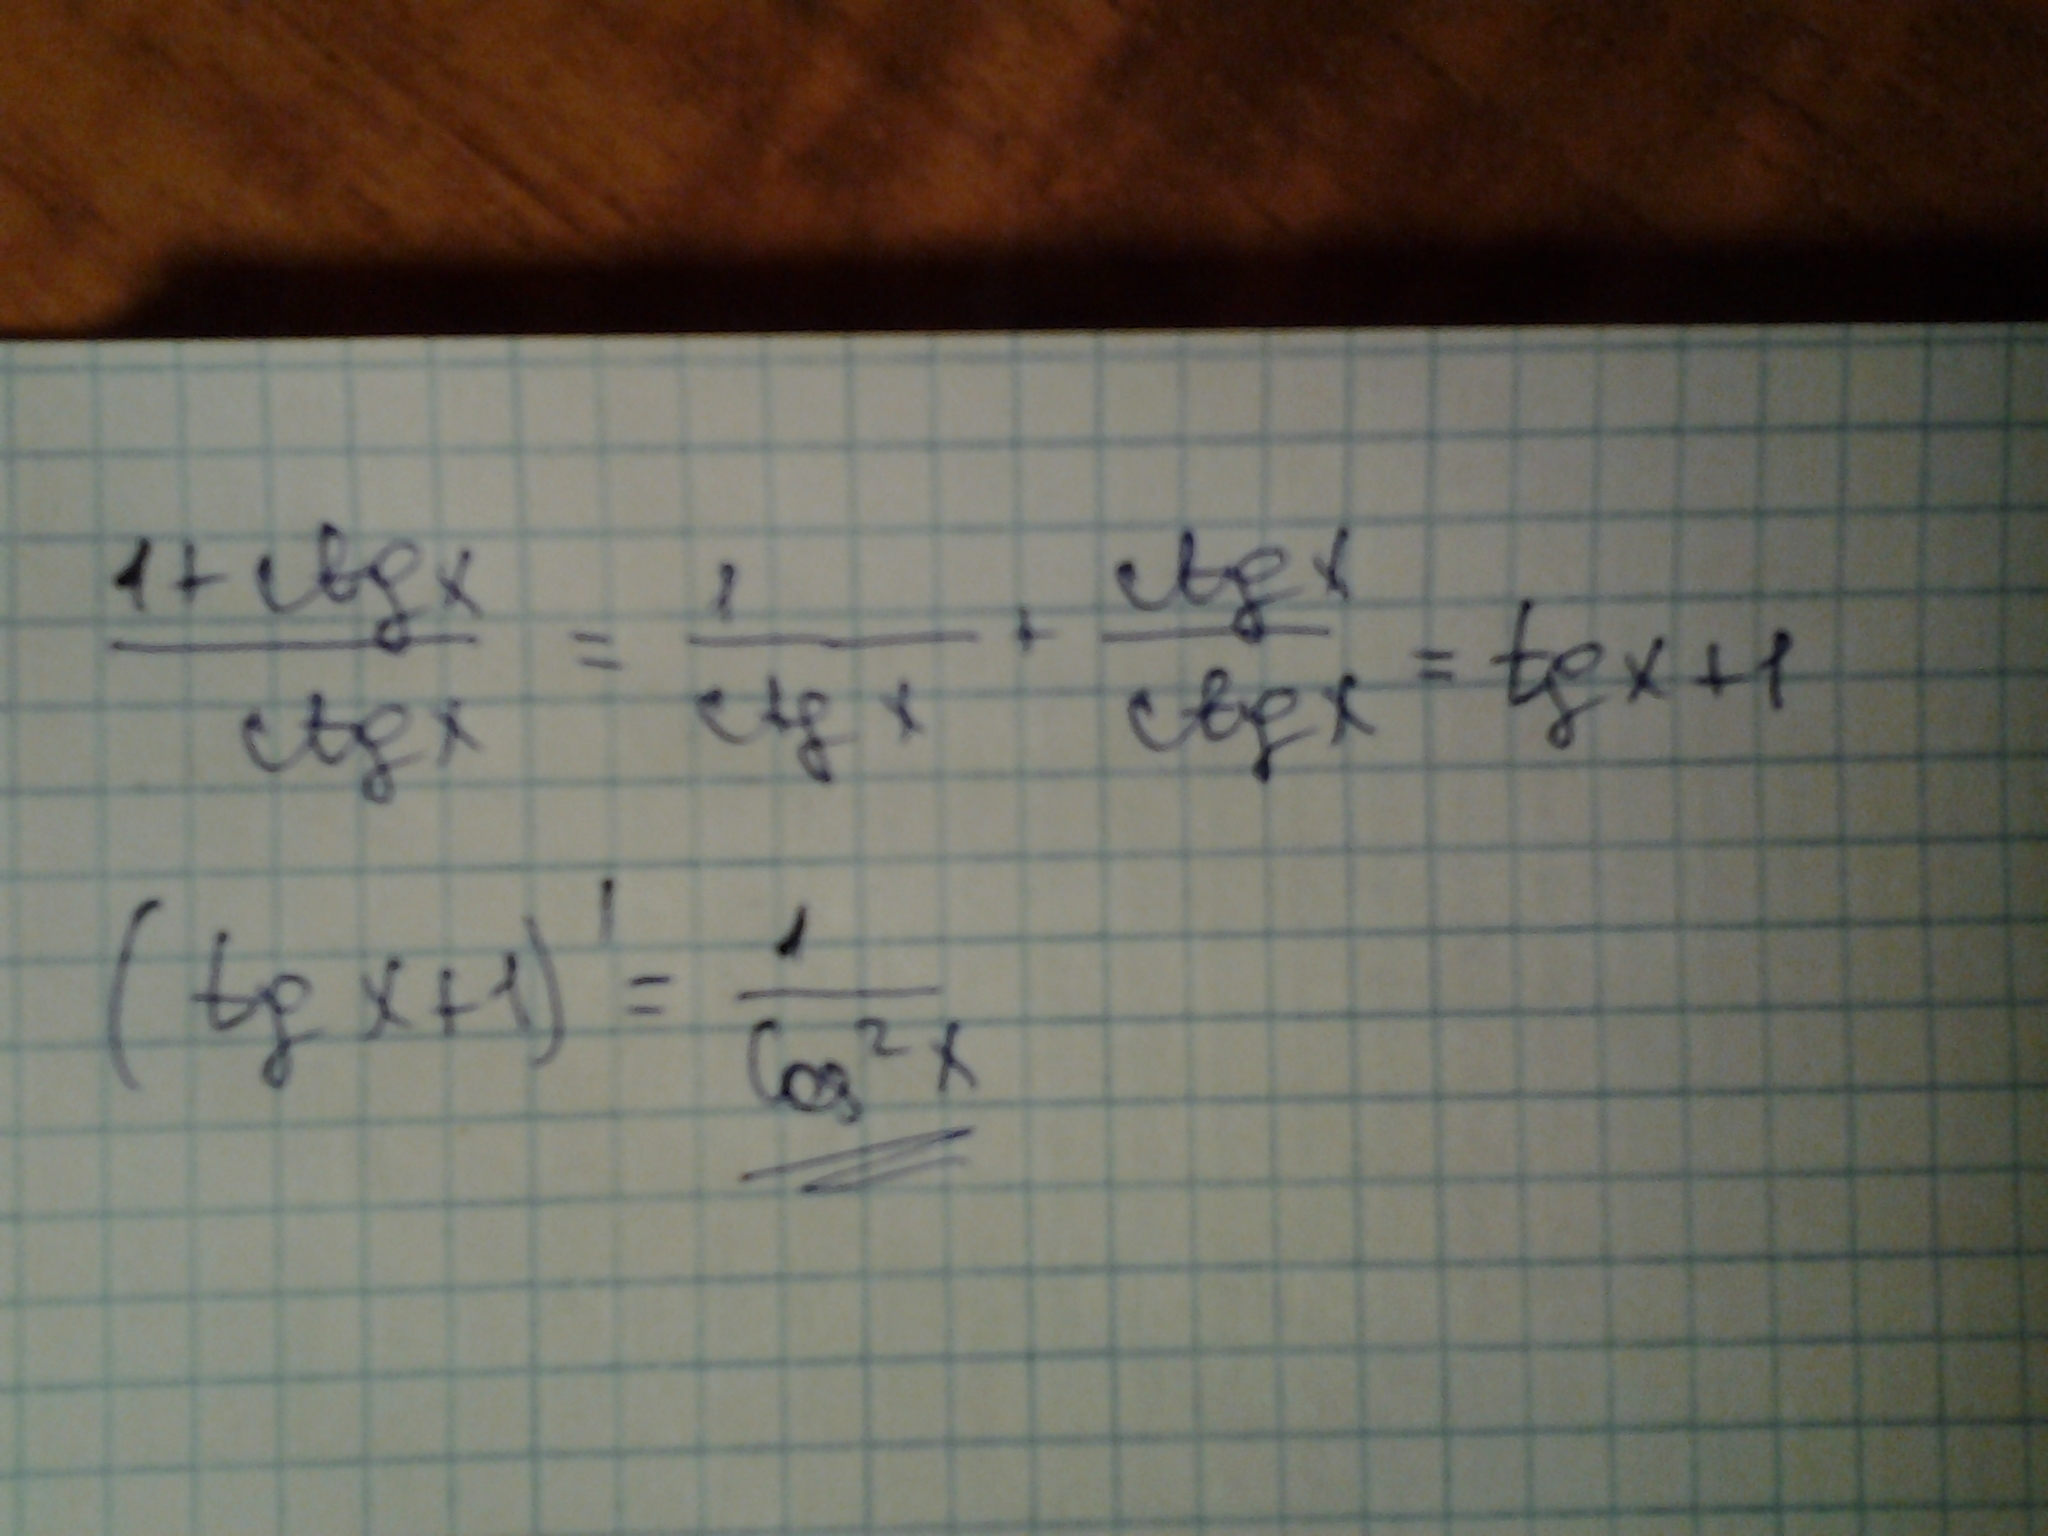 (1 + ctg x) / (ctg x) = 1 / (ctg x) + (ctg x) / (ctg x) = tg x + 1
(tg x + 1)' = 1 / (cos² x)